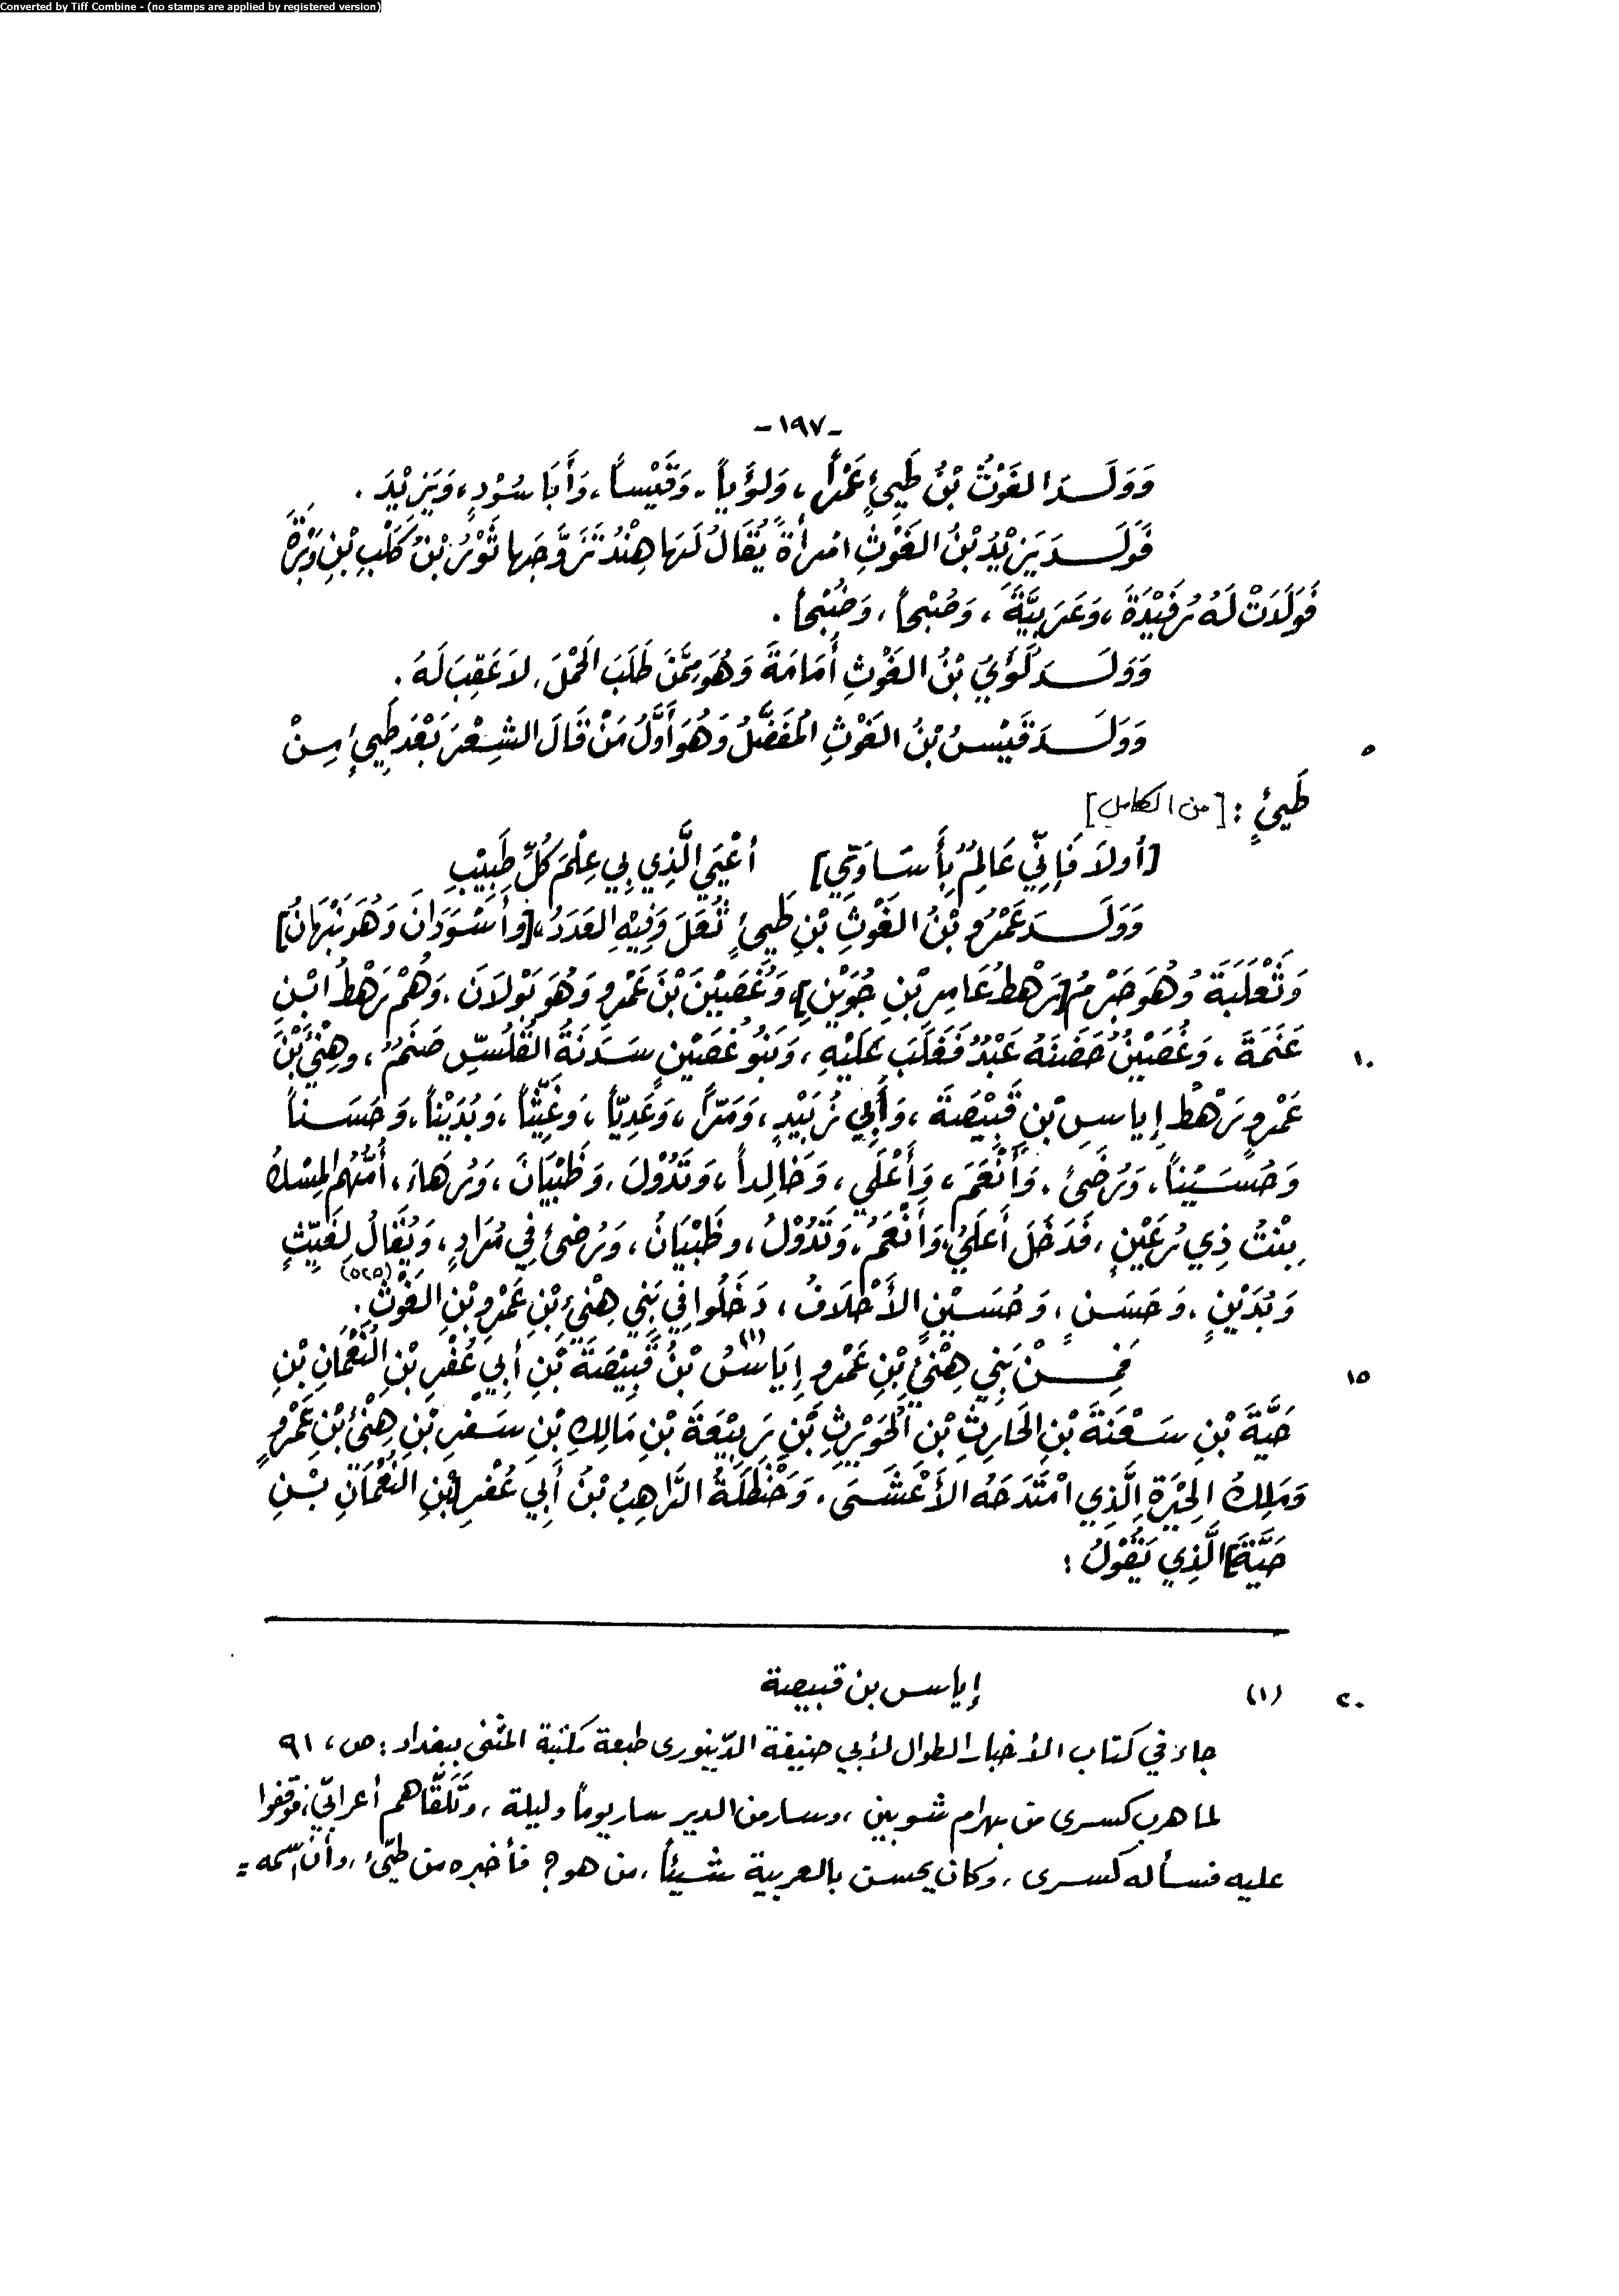 Converted by Tiff Combine - (no stamps are applied by registered version)
-١٩٧-
وَوَلَدَ الغَوْثُ بْنُ طَيِئٍ عَمْراً، وَلُؤَياً، وَقَيْساً، وَأَبَا سُوْدٍ، وَيَزِيْدَ.
فَوَلَدَ يَزِيْدُ بْنُ الغَوْثِ امْرأَةً يُقَالُ لَهَا هِنْدُ تَزَوَّجَها ثَوْرُ بْنُ كَلْبِ بْنِ وَبْرَةَ
فَوَلَدَتْ لَهُ رُفَيْدَةَ، وَعَرَبِيَّةَ، وَصُبْحاً، وَضُبْحاً.
وَوَلَدَ لُؤَيُ بْنُ الغَوْثِ أُمَامَةَ وَهُوَ مِمَّنَ طَلَبَ الحَمْلَ، لاَعَقِبَ لَهُ.
وَوَلَدَ قَيْسُ بْنُ الغَوْثِ المُفَضَّلُ وَهُوَ أَوَّلُ مَنْ قَالَ الشِعْرَ بَعْدَ طَيِئٍ مِنْ
٥
طَيِئٍ: [من الكامل]
[أولاَ فَإِنِّي عَالِمٌ بِأَسَاوَتِي] أَعْيَى الَّذِي بِي عِلْمَ كُلِّ طَبِيْبِ
وَوَلَدَ عَمْرُو بْنُ الغَوْثِ بْنِ طَيِئٍ ثُعَلَ وَفِيْهِ العَدَدُ، [وأَسْوَدَانَ وَهُوَ نَبْهَانُ]
وَثَعْلَبَةَ وُهُوَ جَرْمُ [رَهْطُ عَامِرِ بْنِ جُوَيْنٍ] وَغُصَيْنَ بْنَ عَمْرٍو وَهُوَ بَوْلاَنَ، وَهُمْ رَهْطُ ابْنِ
عَنَمَةَ، وَغُصَيْنُ حَضَنَهُ عَبْدٌ فَغَلَبَ عَلَيْهِ، وَبَنُو غُصَيْنٍ سَدَنَةُ القُلُسِّ صَنَمٌ، وهِنْئَ بْنَ
١٠
عَمْرٍو رَهْطُ إِياسِ بْنِ قَبِيْصَةَ، وَأَبِي زُبَيْدٍ، وَمَرَّاً، وَعَدِيّاً، وَغَيِّثاً، وَبُدَيْناً، وَحَسَناً
وَحُسَيْناً، وَرُضَئ، وَأَنْعَمَ، وَأَعْلَى، وَخَالِداً، وَتَدُوْلَ، وَظَبْيَانَ، وَرُهَاءَ، أُمُّهُم المِسْكُ
بِنْتُ ذِي رُعَيْنٍ، فَدَخَلَ أَعَلَى، وَأَنْعَمُ، وَتَدُوْلُ، وظَبْيَانُ، وَرُضئ فِي مُرَادٍ، وَيُقَالُ لِغَيِّثٍ
وَبُدَيْنٍ، وَحَسَنٍ، وَحُسَيْنٍ الأَحْلاَفُ، دَخَلُوا فِي بَنِي هِنْئِ بْنِ عَمْرِو بْنِ الغَوْثِ.
فَمِنْ بَنِي هِنْئِ بْنِ عَمْرٍو إِيَاسُ (١) بْنُ قَبِيْصَةَ بْنِ أَبِي عُفْرِ بْنِ النُعْمَانِ بْنِ
١٥
حَيَّةَ بْنِ سَعْنَةَ بْنِ الحَارِثِ بْنِ الحُوَيْرِثِ بْنِ رَبِيْعَةَ بْنِ مَالِكِ بْنِ سَفْرِ بْنِ هِنْئِ بْنِ عَمْرٍو
وَمَلِكُ الحِيْرَةِ الَّذِي امْتَدَحَهُ الأَعْشَى، وَحَنْظَلَةُ الرَّاهِبُ بْنُ أَبِي عُفْرِ [بْنِ النُعْمَانِ بْنِ
حَيَّةَ] الَّذِي يَقُوْلُ:
(١) إياس بن قبيصة
٢٠
جاء في كتاب الأخبار الطوال لأبي حنيفة الدّينوري طبعة مكتبة المثنى ببغداد: ص، ٩١
لما هرب كسرى من بهرام شوبين، وسار من الدير سار يوماً وليلة، وتَلَقَّاهم أعرابيّ، فوقفوا
عليه فسأله كسرى، وكان يحسن بالعربية شيئاً، من هو؟ فأخبره من طيّئ، وأن اسمه =